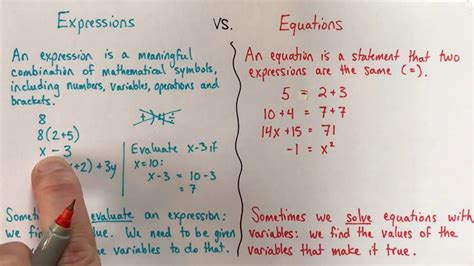 Expressions vs. Equations
An expression is a meaningful
combination of mathematical symbols,
including numbers, variables, operations and
brackets.
8
8(2+5)
x - 3
x+2) + 3y
Evaluate x-3 if
x=10:
x-3 = 10-3
= 7
evaluate an expression:
we We need to be given
variables to do that.
An equation is a statement that two
expressions are the same (=).
5 = 2+3
10+4 = 7+7
14x+15 = 71
-1 = x²
Sometimes we solve equations with
variables: we find the values of the
variables that make it true.